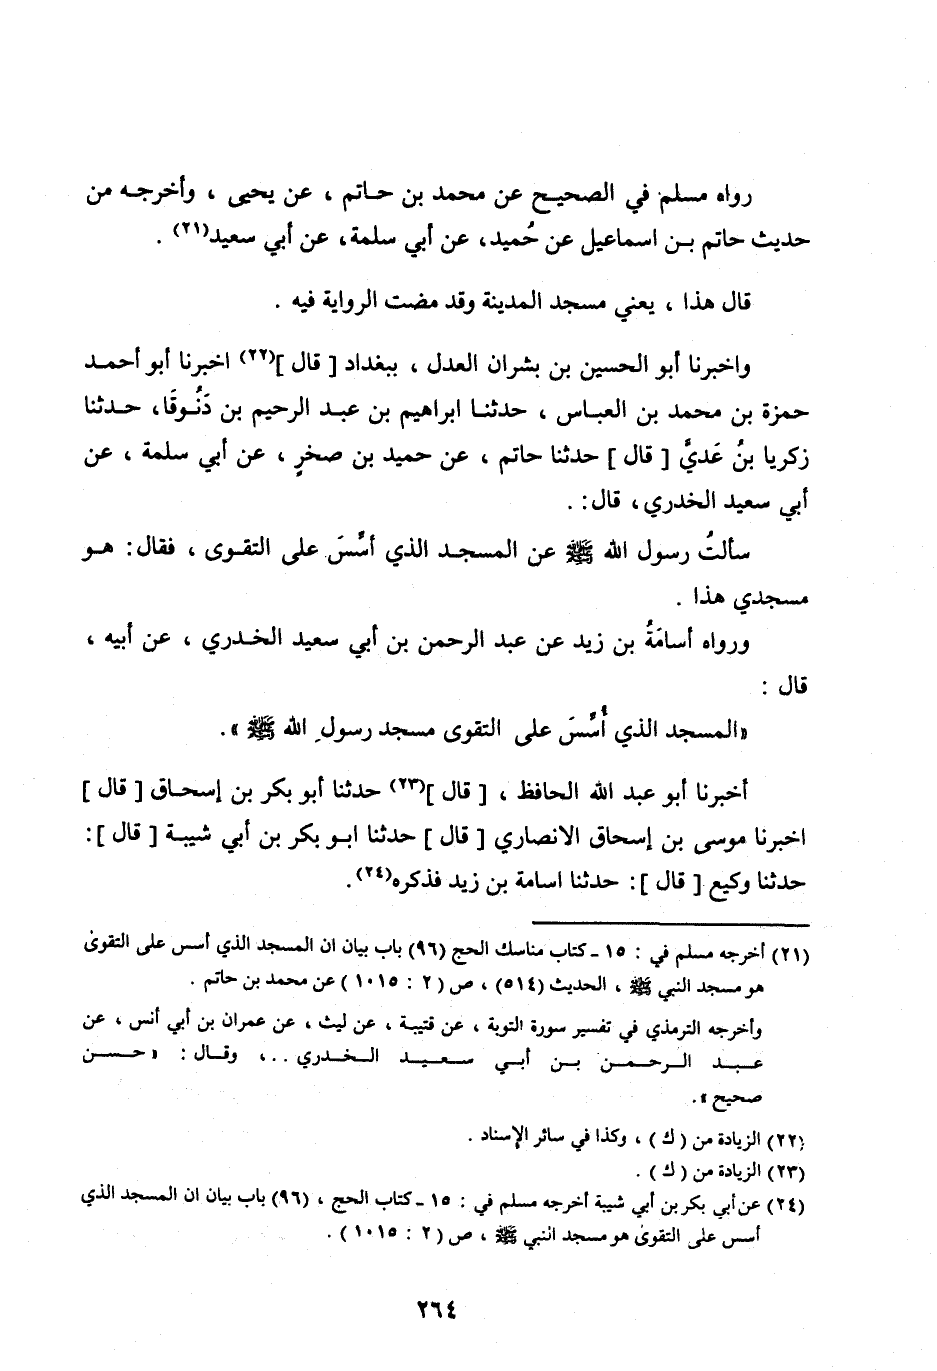 رواه مسلم في الصحيح عن محمد بن حاتم ، عن يحيى ، وأخرجه من
حديث حاتم بن اسماعيل عن حُميد، عن أبي سلمة، عن أبي سعيد(٢١) .
قال هذا ، يعني مسجد المدينة وقد مضت الرواية فيه .
واخبرنا أبو الحسين بن بشران العدل ، ببغداد [ قال ](٢٢) اخبرنا أبو أحمد
حمزة بن محمد بن العباس ، حدثنا ابراهيم بن عبد الرحيم بن دَنُوقَا، حدثنا
زكريا بنُ عَديًّ [ قال ] حدثنا حاتم ، عن حميد بن صخرٍ ، عن أبي سلمة ، عن
أبي سعيد الخدري، قال: .
سألتُ رسول الله ﷺ عن المسجد الذي أسِّسَ على التقوى ، فقال: هو
مسجدي هذا .
ورواه أسامَةُ بن زيد عن عبد الرحمن بن أبي سعيد الخدري ، عن أبيه ،
قال :
«المسجد الذي أُسِّسَ على التقوى مسجد رسول الله ﷺ».
أخبرنا أبو عبد الله الحافظ ، [ قال ](٢٣) حدثنا أبو بكر بن إسحاق [ قال ]
اخبرنا موسى بن إسحاق الانصاري [ قال ] حدثنا ابو بكر بن أبي شيبة [ قال ]:
حدثنا وكيع [ قال ]: حدثنا اسامة بن زيد فذكره(٢٤).
(٢١) أخرجه مسلم في : ١٥ ـ كتاب مناسك الحج (٩٦) باب بيان ان المسجد الذي أسس على التقوىٰ
هو مسجد النبي ﷺ ، الحديث (٥١٤) ، ص ( ٢ : ١٠١٥ ) عن محمد بن حاتم .
وأخرجه الترمذي في تفسير سورة التوبة ، عن قتيبة ، عن ليث ، عن عمران بن أبي أنس ، عن
عبد الرحمن بن أبي سعيد الخدري ..، وقال : «حسن
صحيح».
(٢٢) الزيادة من ( ك ) ، وكذا في سائر الإسناد .
(٢٣) الزيادة من ( ك ) .
(٢٤) عن أبي بكر بن أبي شيبة أخرجه مسلم في : ١٥ ـ كتاب الحج ، (٩٦) باب بيان ان المسجد الذي
أسس على التقوىٰ هو مسجد النبي ﷺ ، ص ( ٢ : ١٠١٥ ) .
٢٦٤